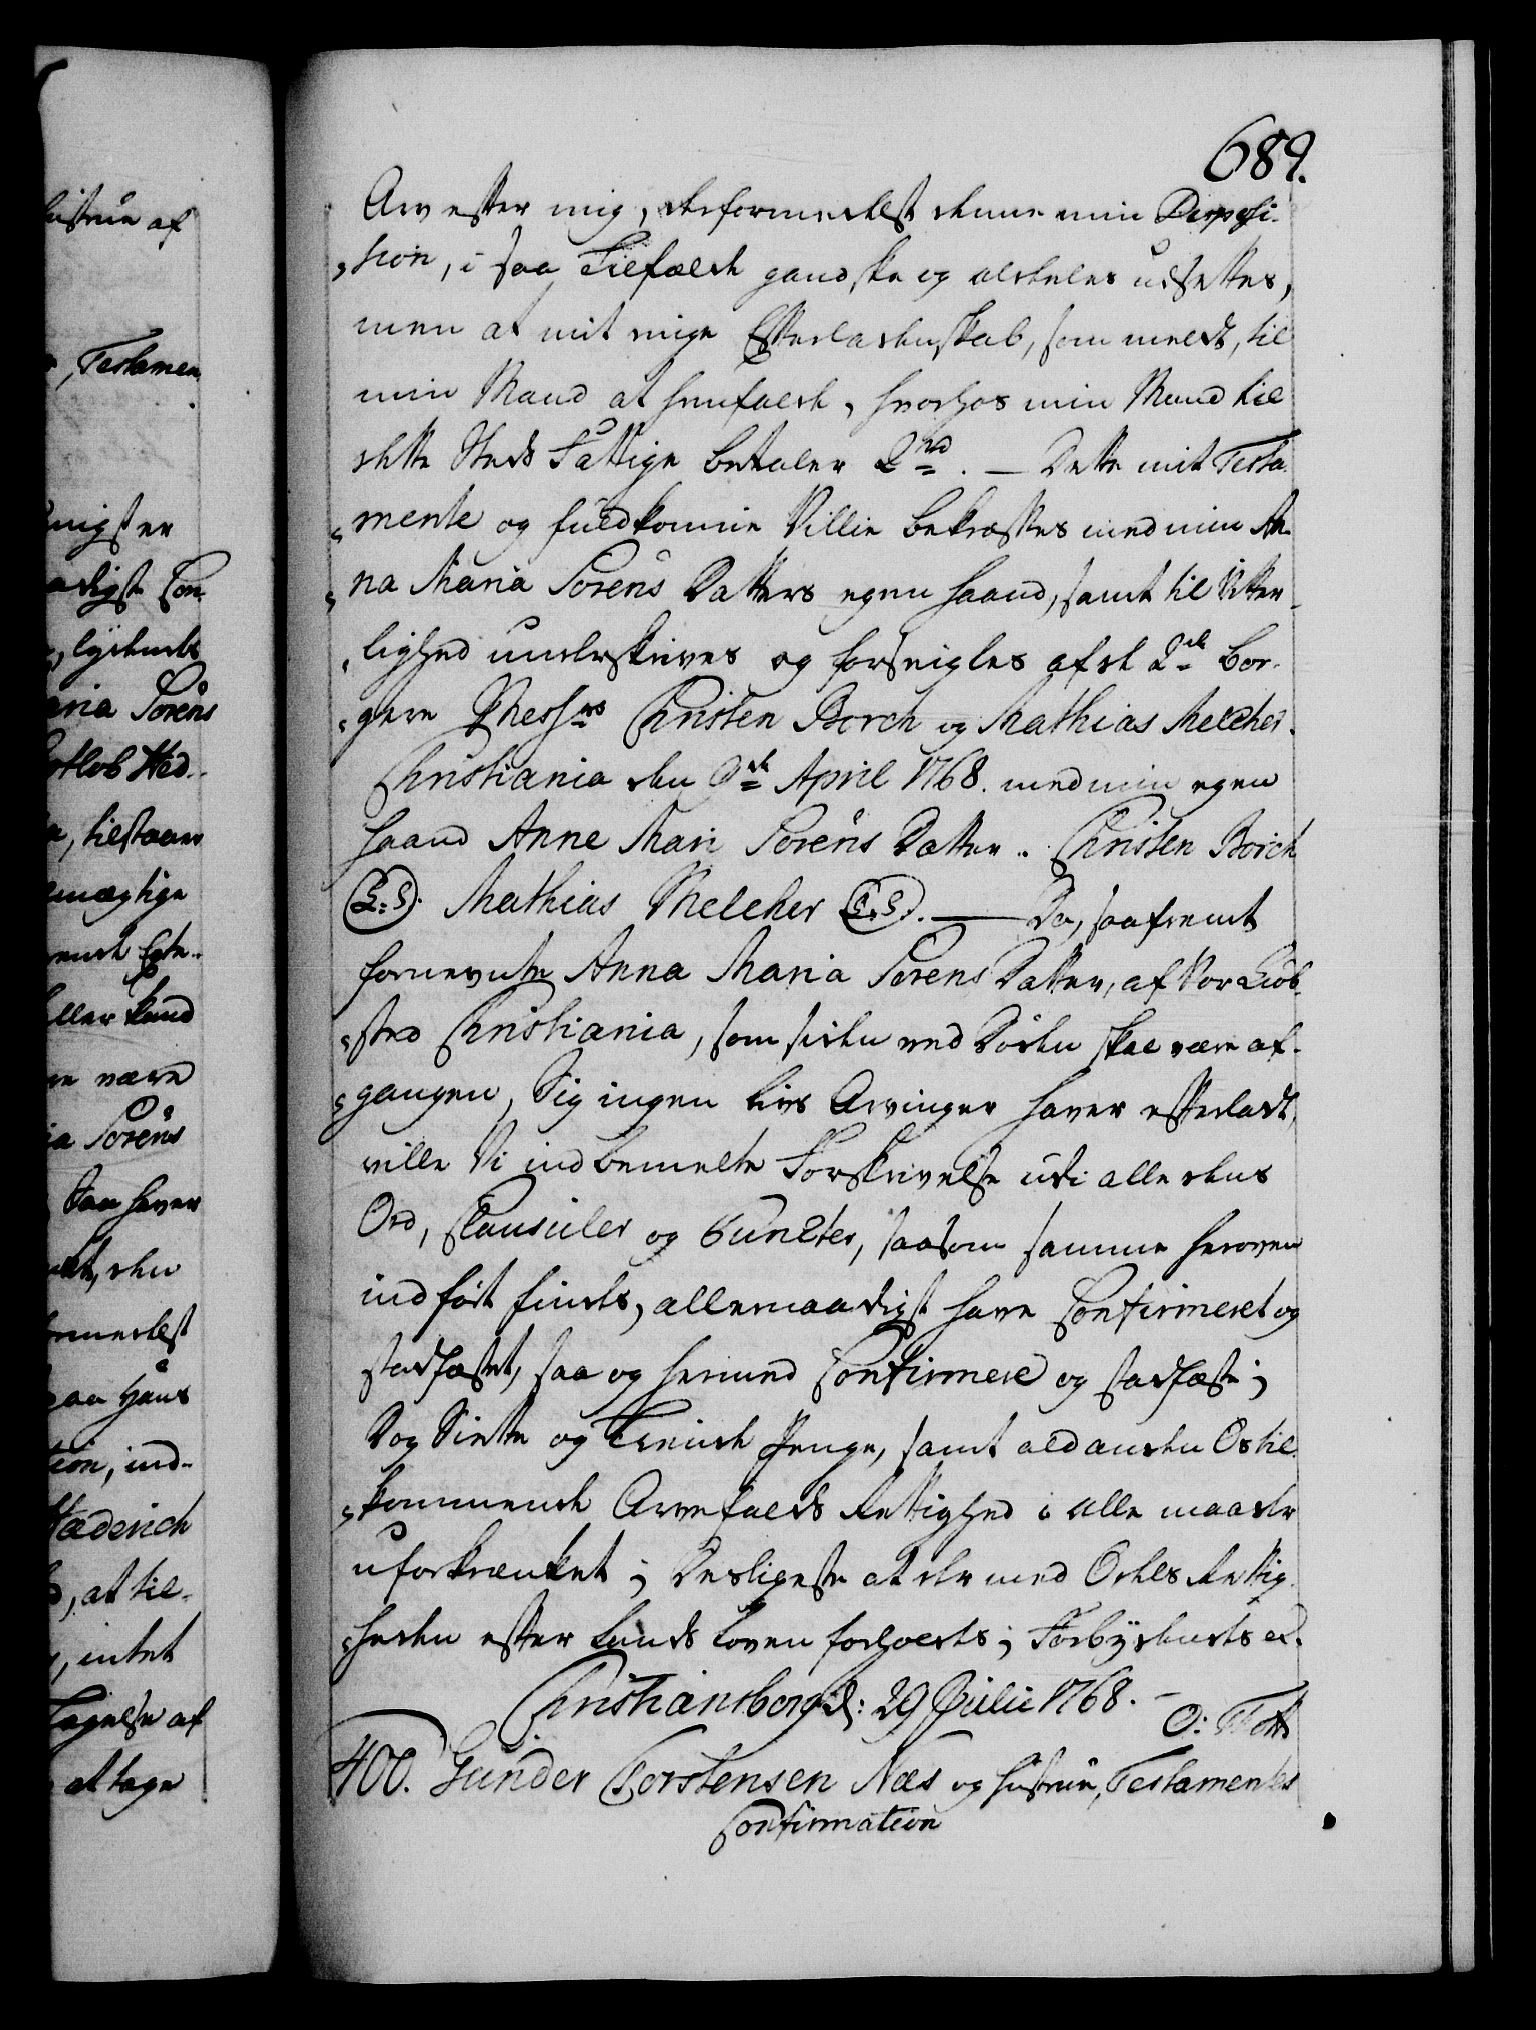 689.
Arv efter mig, derformedelst denne min Disposi-
tion, i saa Tilfælde gandske og aldeles udsettes,
men at mit eige Efterladenskab, som meldt, til
min Mand at henfalde, hvorhos min Mand til
dette Steds Fattige betaler 2 rd. — Dette mit Testa-
mente og fuldkomne Villie bekræftes med min An-
na Maria Sorens Datters egen Haand, samt til Vitter-
lighed underskrives og forseigles af de 2de Bor-
gere Messrs Christen Borch og Mathias Melcher.
Christiania den 9de April 1768. med min egen
Haand Anne Mari Sorens Datter. Christen Borch
(L:S). Mathias Melcher (L:S). — Da, saafremt
fornevnte Anna Maria Sorens Datter, af Vor Kiøb-
sted Christiania, som siden ved Døden skal være af-
gangen, Sig ingen Livs Arvinger haver efterladt,
ville Vi indbemelte Forskrivelse udi alle dens
Ord, Clausuler og Puncter, saasom samme heroven
indført findes, allernaadigst have Confirmeret og
stadfæstet, saa og hermed Confirmere og stadfæste;
Dog Siette og Tiende Penge, samt ald anden Os til-
kommende Arvefalds Rettighed i alle maader
uforkrænket; Desligeste at der med Odels Rettig-
heden efter Lands Loven forholdes; Forbydendes etc.
Christiansborg d: 29 Julii 1768. –
O: Thott
400. Gunder Torstensen Næs og Hustrue, Testaments
Confirmation
hustrue af
, Testamen
nigst er
adigste Con-
, lydendes
aria Sorens
otlob Hed-
, tilstaaer
lmægtige
ende Egte-
ller kand
re være
ia Sorens
Saa haver
, den
rmedelst
paa Hans
tion, ind-
Hæderich
, at til-
, intet
Tagelse af
at tage